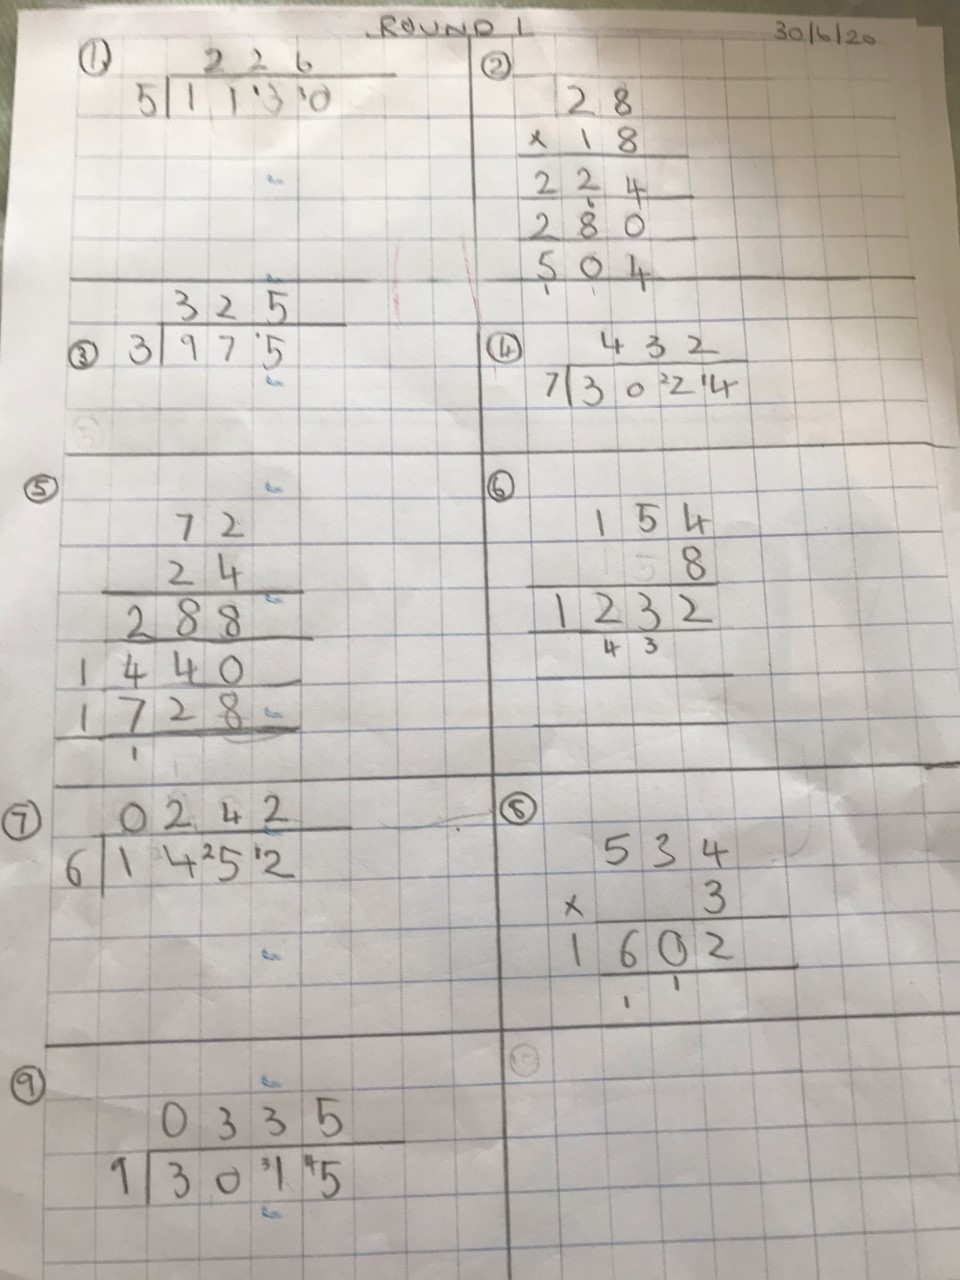 ROUND 1 30/6/20
① 2 2 6
5 1 1 ¹3 ³0
② 2 8
x 1 8
2 2 4
6
2 8 0
5 0 4
1 1
3 2 5
③ 3 9 7 ¹5
④ 4 3 2
7 3 0 ²2 ¹4
⑤
7 2
2 4
2 8 8
1 4 4 0
1 7 2 8
1
⑥
1 5 4
8
1 2 3 2
4 3
⑦ 0 2 4 2
6 1 4 ²5 ¹2
⑧
5 3 4
x 3
1 6 0 2
1 1
⑨
0 3 3 5
9 3 0 ³1 ⁴5
⑩